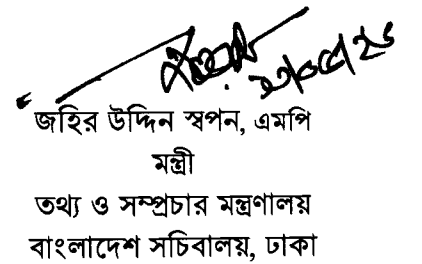 জহির উদ্দিন স্বপন, এমপি
মন্ত্রী
তথ্য ও সম্প্রচার মন্ত্রণালয়
বাংলাদেশ সচিবালয়, ঢাকা